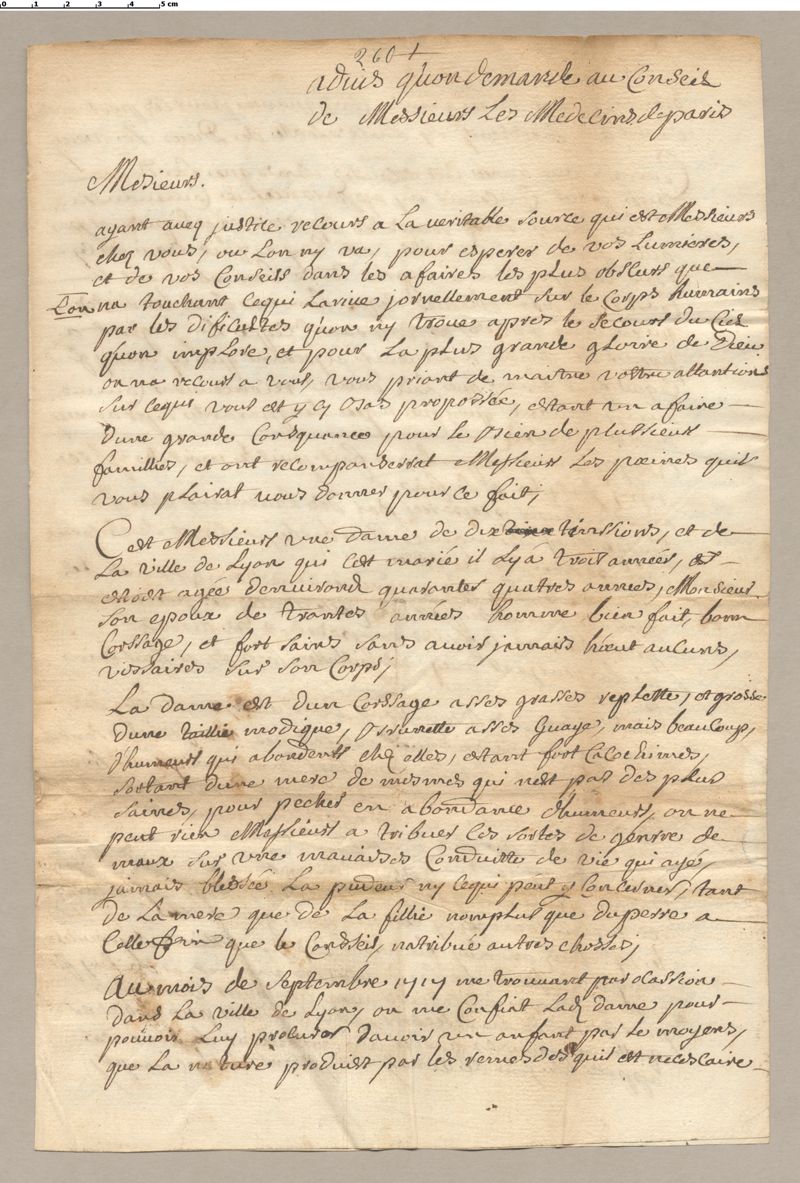 0 1 2 3 4 5 cm
260 +
aduis qu'on demande au Conseil
de Messieurs Les Medecins de paris
Mesieurs.
ayant aueq justice recours a La veritable source qui est Messieurs
cheq vous, ou Lon ny va, pour esperer de vos Lumieres,
et de vos Conseils dans les afaires les plus obscurs que
Lon na touchant ce qui Lariue jornellement sur le Corps humains
par les dificultes qu'on ny troue apres le secours du Ciel
qu'on implore, et pour La plus grande gloire de Dieu
on na recours a vous, vous priant de maitre vostre attantions
sur ce qui vous est y cy propossée, estant un afaire
dune grande Consquance pour le bien de plussieurs
famillies, et ont recompanserrat Messieurs Les pœines quil
vous plairat nous donner pour ce fait;
Cest Messieurs une dame de distinssions, et de
La ville de Lyon qui cest marié il Ly á trois années,
estoist agée denuirond quarantes quatres années, Monsieur
son epoux de trantes années homme bien fait, bonn
Corssage, et fort sains sans auoir jamais hœut aucuns,
vissaires sur son Corps;
La dame est dun Corssage asses grasses replette, et grosse
dune taillie modique, brunette asses Guaye, mais beaucoup,
d'humeurs qui abondents cheq elles, estant fort Cacochimes,
sortant dune mere de mesmes qui nest pas des plus
saines, pour pecher en abondance d'humeurs, on ne
peut rien Messieurs atribuer ces sortes de genrre de
maux sur vne mauaisses Conduitte de vié qui ayé,
jamais blessée La pudeur ny ce qui peut y Concerner, tant
de La mere que de La fillie nomplus que du perre a
Celle fin que le Conseil, natribué autres chosses;
Au mois de Septembre 1717 me trouuant par ocassion
dans La ville de Lyon, on me Confiat Lad dame pour
pouuoir Luy procurer d'auoir un anfant par le moyens,
que La nature produist par les remedes quil est necessaire